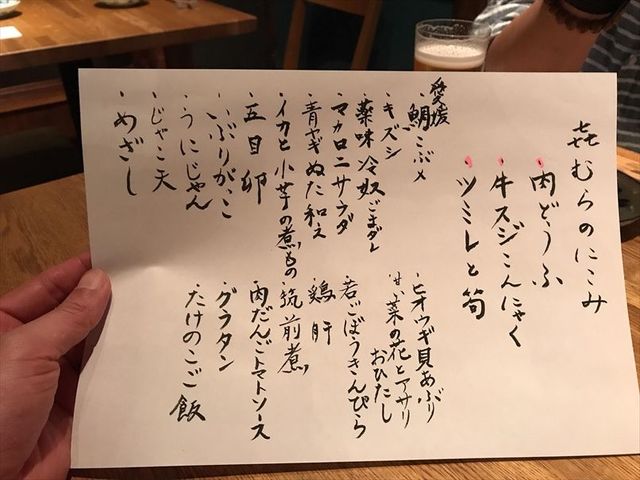 㐂むらのにこみ
・肉どうふ
・牛スジこんにゃく
・ツミレと筍
愛媛
・鯛こぶ〆
・キズシ
・薬味冷奴ごまダレ
・マカロニサラダ
・青ヤギぬた和え
・イカと小芋の煮もの
・五目卵
・いぶりがっこ
・うにじゃん
・じゃこ天
・めざし
・ヒオウギ貝あぶり
・菜の花とアサリ
おひたし
・若ごぼうきんぴら
・鶏肝
・筑前煮
・肉だんごトマトソース
・グラタン
・たけのこご飯